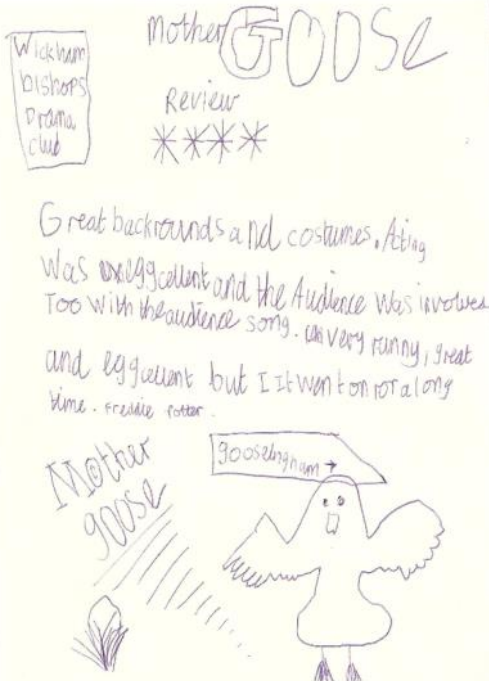 Wickham
bishops
Drama
club
Mother GOOSe
Review
****
Great backrounds and costumes. Acting
was eggcellent and the Audience was involved
Too with the audience song. very funny, great
and eggcellent but I It went on for a long
time. Freddie Potter.
Mother
goose
gooselngham →